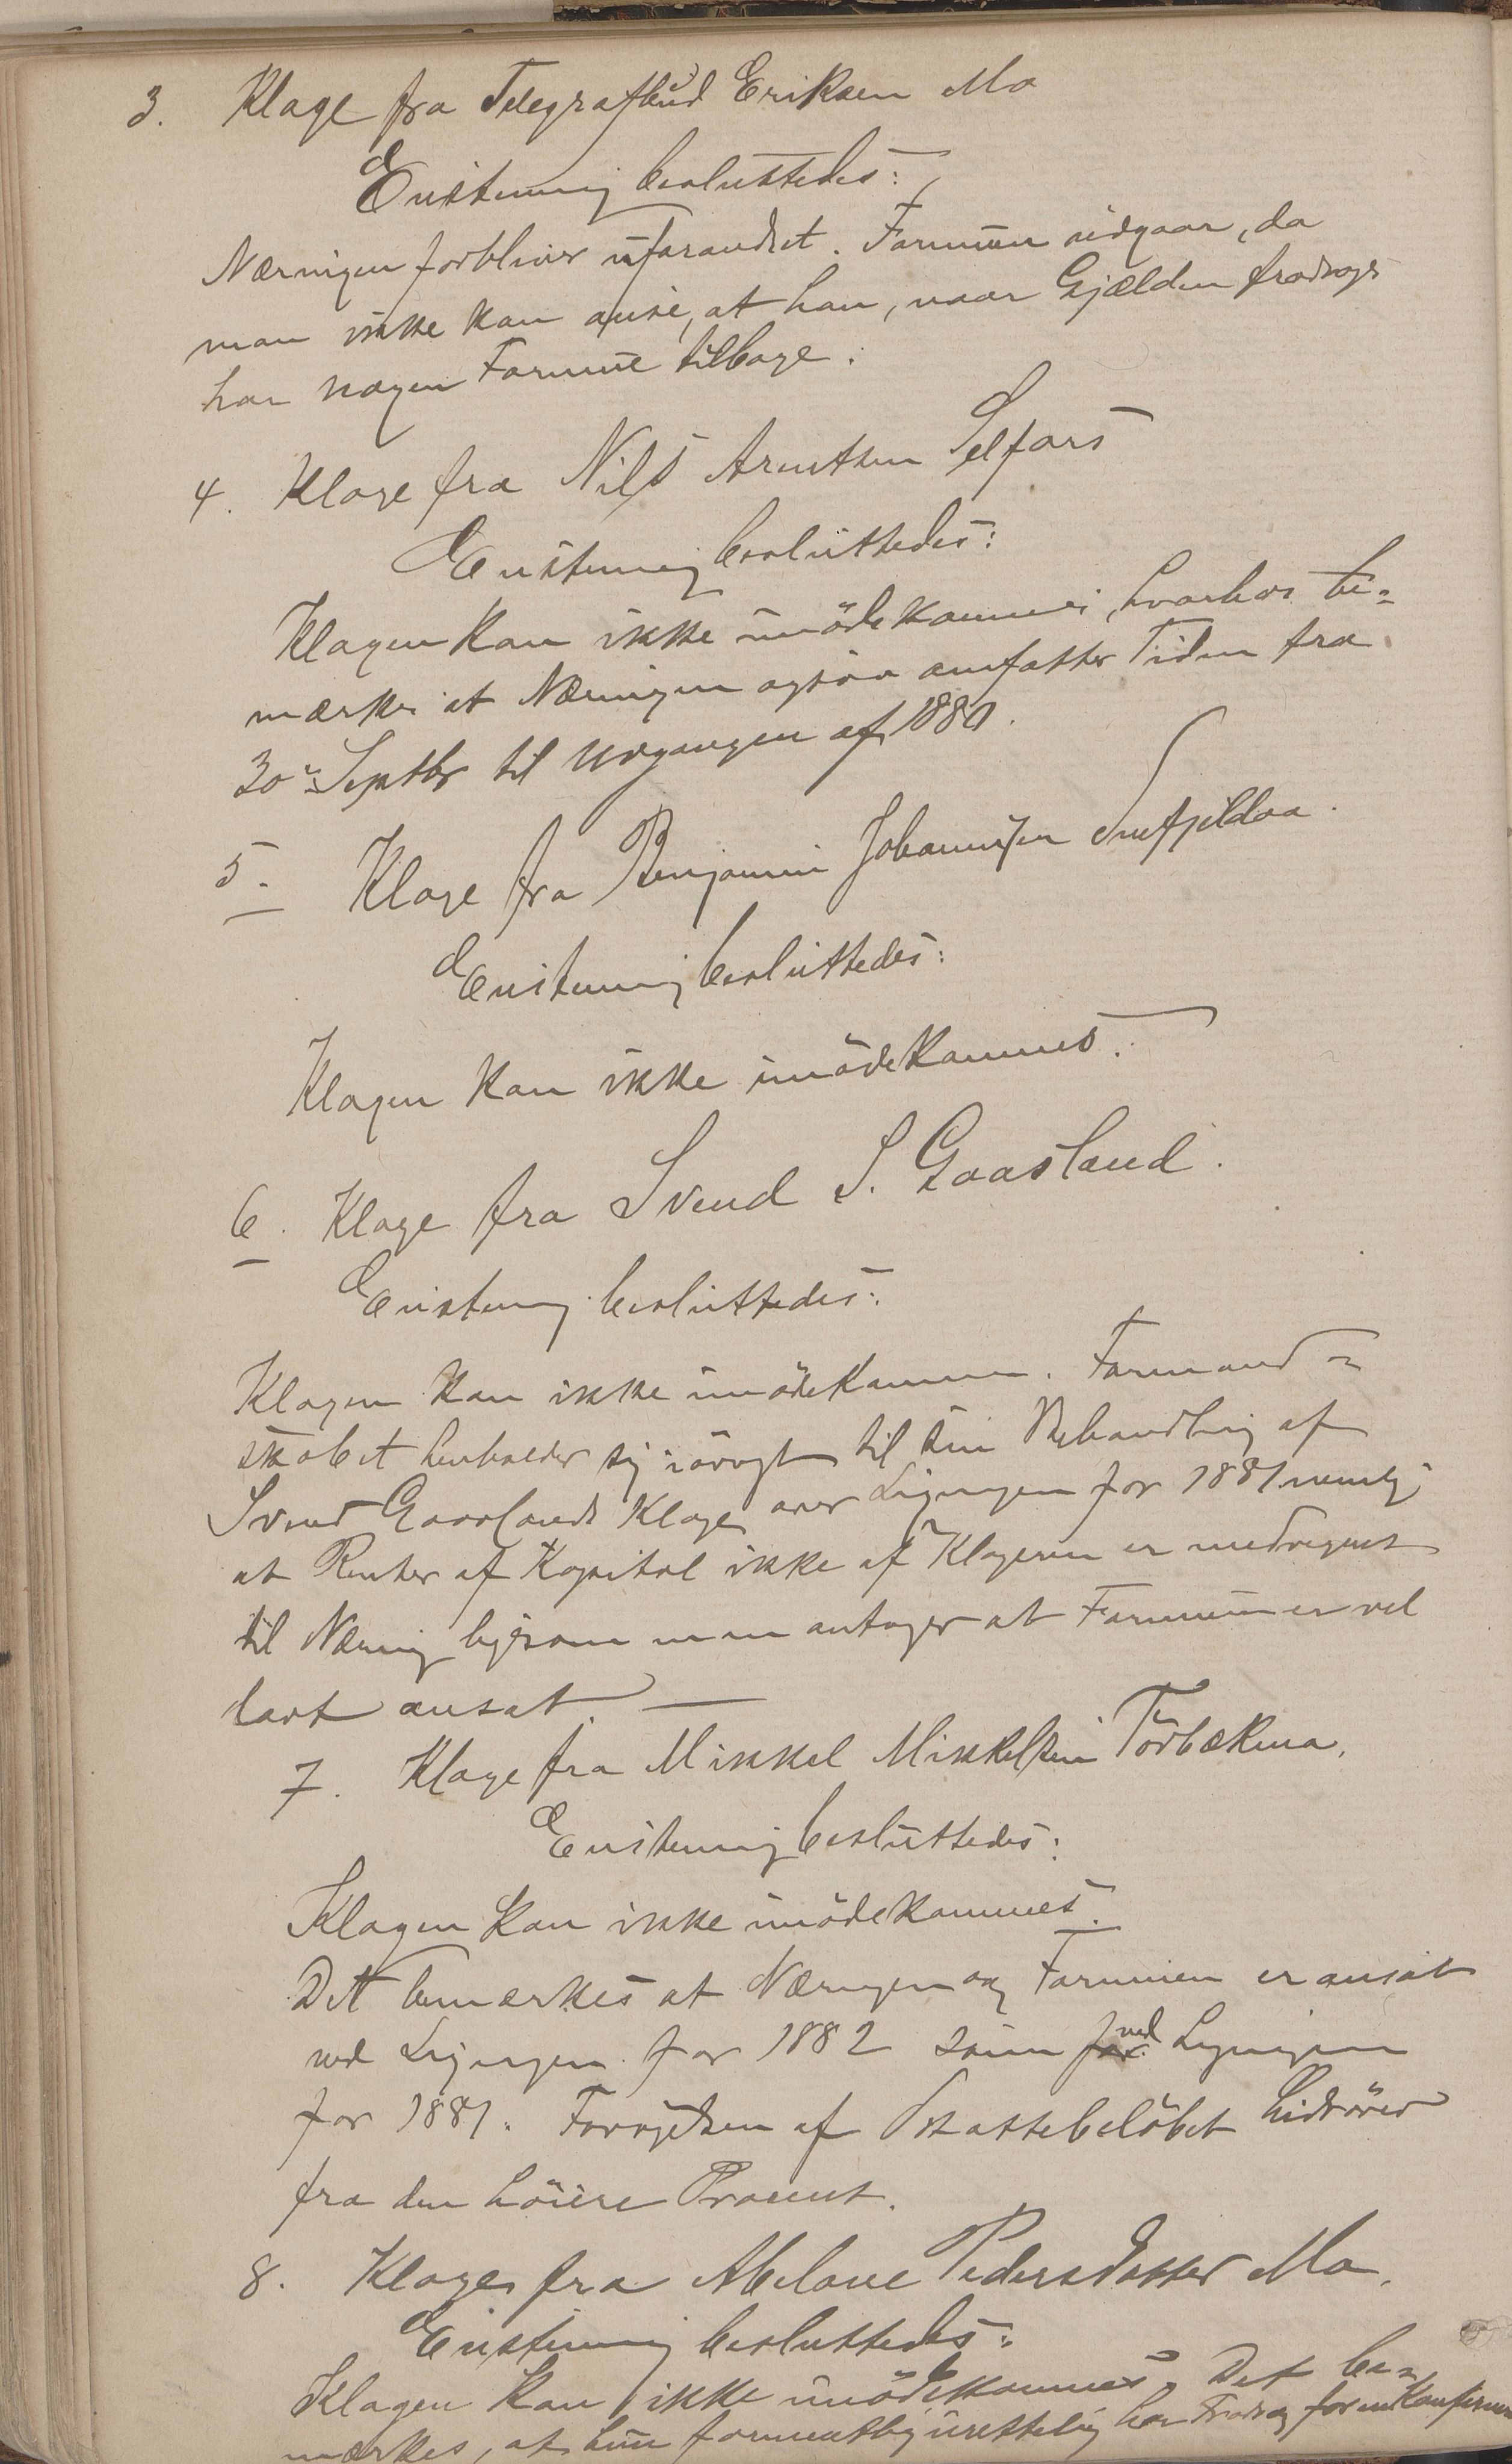 3. Klage fra Telegrafbud Eriksen Mo
Enstemmig besluttedes:
Næringen forbliver uforandret. Formuen udgaar, da
man ikke kan anse, at han, naar Gjælden fradrages
har nogen Formue tilbage.
4. Klage fra Nils Arentsen Selfors
Enstemmig besluttedes:
Klagen kan ikke imödekommes, hvorhos be=
mærkes at Næringen ogsaa omfatter Tiden fra
30te Septbr til Udgangen af 1881.
5. Klage fra Benjamin Johannesen Snefjeldaa.
Enstemmig besluttedes:
Klagen kan ikke imödekommes.
6. Klage fra Svend S. Gaasland.
Enstemmig besluttedes:
Klagen kan ikke imödekommes. Formand=
skabet henholder sig iövrigt til sin Behandling af
Svend Gaaslands Klage over Ligningen for 1881 nemlig
at Renter af Kapital ikke af Klageren er medregnet
til Næring ligesom man antager at Formuen er vel
lavt ansat. —
7. Klage fra Mikkel Mikkelsen Törbækmo.
Enstemmig besluttedes:
Klagen kan ikke imödekommes.
Det bemærkes at Næringen og Formuen er ansat
ved Ligningen for 1882 som ved Ligningen
for 1881. Forögelsen af Skattebelöbet hidrörer
fra den höiere Procent.
8. Klage fra Abelone Pedersdatter Mo.
Enstemmig besluttedes:
Klagen kan ikke imödekommes. Det be=
mærkes, at hun formentlig urettelig har Fradrag for en Konfirm